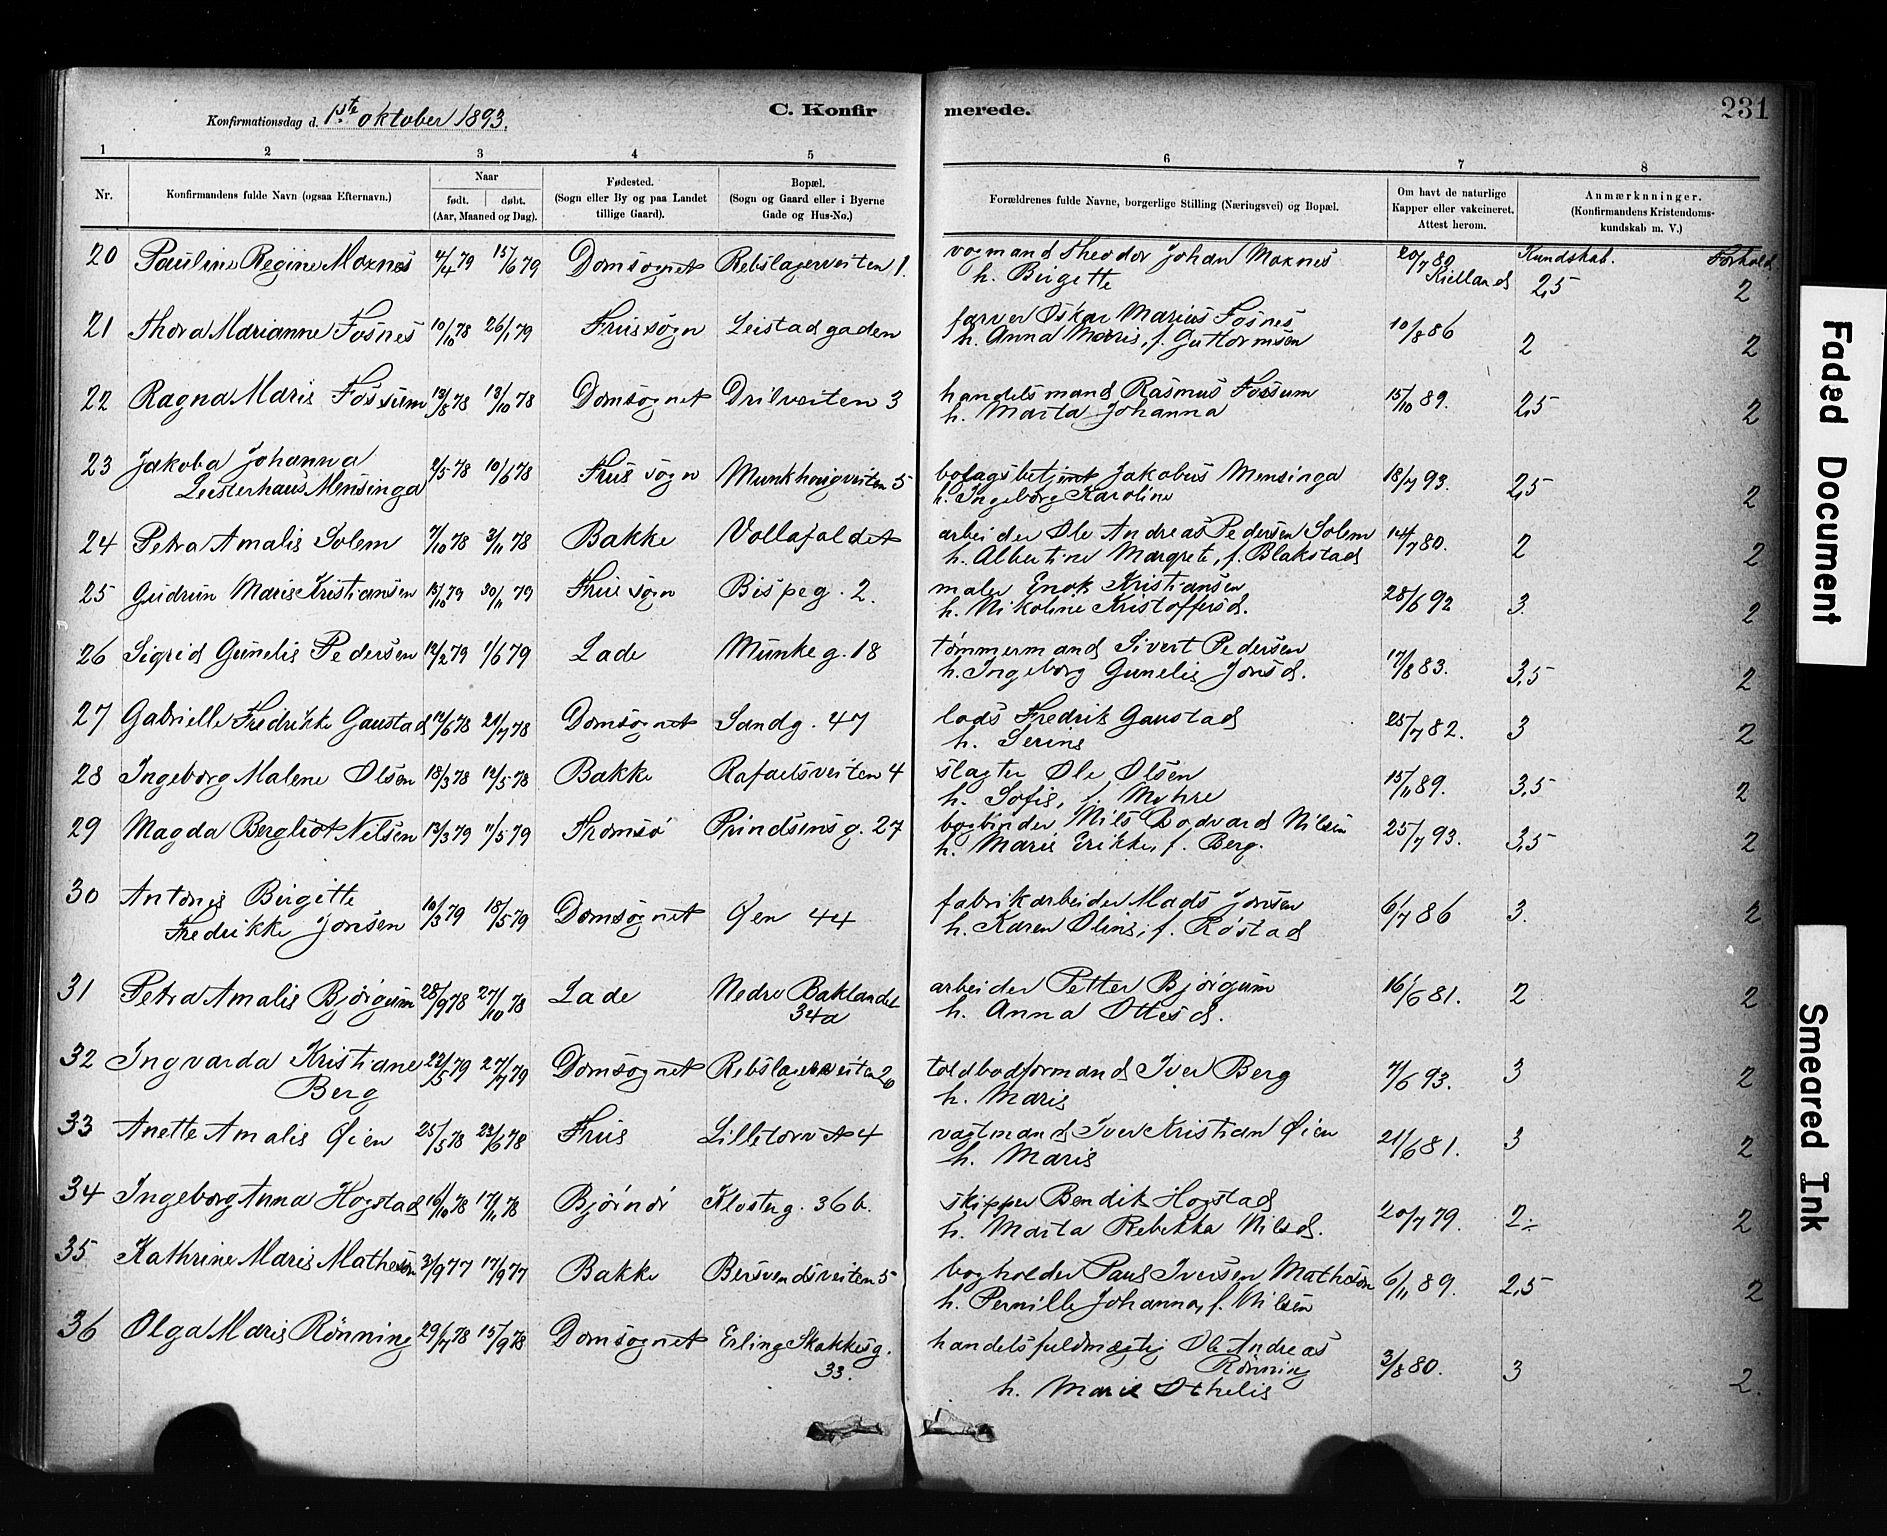 Konfirmationsdag d. 1ste oktober 1893.
C. Konfir
merede.
231
1 2 3 4 5 6 7 8
Nr.
Konfirmandens fulde Navn (ogsaa Efternavn.)
Naar
født. døbt.
(Aar, Maaned og Dag).
Fødested.
(Sogn eller By og paa Landet
tillige Gaard).
Bopæl.
(Sogn og Gaard eller i Byerne
Gade og Hus-No.)
Forældrenes fulde Navne, borgerlige Stilling (Næringsvei) og Bopæl.
Om havt de naturlige
Kapper eller vakcineret.
Attest herom.
Anmærknninger.
(Konfirmandens Kristendoms-
kundskab m. V.)
Kundskab. Forhold
20 Pauline Regine Moxnes 4/4 79 15/6 79 Domsognet Rebslagerveiten 1. vognmand Theodor Johan Moxnes 20/7 80
h. Birgitte Kielland 2,5 2
21 Thora Marianne Fosnes 10/10 78 26/1 79 Fruesogn Leistadgaden farver Oskar Marius Fosnes 10/8 86
h. Anna Marie, f. Guttormsen 2 2
22 Ragna Marie Fossum 13/8 78 13/10 78 Domsognet Drilveiten 3 handelsmand Rasmus Fossum 15/10 89. 2,5
h. Marta Johanna 2
23 Jakoba Johanna
Leisterhaus Mensinga 2/5 78 10/6 78 Frue sogn Munkhaugveiten 5 bolagsbetjent Jakobus Mensinga 18/7 93. 2,5
h. Ingeborg Karoline 2
24 Petra Amalie Solem 7/10 78 3/11 78 Bakke Vollafaldet arbeider Ole Andreas Pedersen Solem 14/7 80. 2
h. Albertine Margrete, f. Blakstad 2
25 Gudrun Marie Kristiansen 13/10 79 30/11 79 Frue sogn Bispeg. 2. maler Enok Kristiansen 28/6 92 3.
h. Nikoline Kristoffersd. 2
26 Sigrid Gunelie Pedersen 12/2 79 1/6 79 Lade Munkeg. 18 tømmermand Sivert Pedersen 17/8 83. 3,5
h. Ingeborg Gunelie Jonsd. 2
27 Gabrielle Fredrikke Gaustad 12/6 78 21/7 78 Domsognet Sandg. 47 lods Fredrik Gaustad 25/7 82. 3
h. Serine 2
28 Ingeborg Malene Olsen 18/3 78 12/5 78 Bakke Rafaelsveiten 4 slagter Ole Olsen 15/11 89. 3,5
h. Sofie, f. Myhre 2
29 Magda Bergliot Nilsen 13/3 79 11/5 79 Tromsø Prindsensg. 27 bogbinder Nils Bodvard Nilsen 25/7 93. 3,5
h. Marie Erikke, f. Berg. 2
30 Antonie Birgitte
Fredrikke Jonsen 10/3 79 18/5 79 Domsognet Øen 44 fabrikarbeider Mads Jonsen 6/7 86 3.
h. Karen Oline, f. Røstad 2
31 Petra Amalie Bjørgum 28/9 78 27/10 78 Lade Nedre Baklandet
34a arbeider Petter Bjørgum 16/6 81. 2
h. Anna Ottesd. 2
32 Ingvarda Kristiane
Berg 22/5 79 27/7 79 Domsognet Rebslagerveiten 26 toldbodformand Iver Berg 7/6 93. 3
h. Marie 2
33 Anette Amalie Øien 25/5 78 23/6 78 Frue Lilletorvet 4 vagtmand Iver Kristian Øien 21/6 81. 3
h. Marie 2
34 Ingeborg Anna Hogstad 16/10 78 17/11 78 Bjørnør Klosterg. 36 b. skipper Bendik Hogstad 20/7 79. 2.
h. Marta Rebekka Nilsd. 2
35 Kathrine Marie Matheson 2/9 77 17/9 77 Bakke Bersvendsveiten 5 bogholder Paul Iversen Matheson 6/11 89. 2,5
h. Pernille Johanna, f. Nilsen 2
36 Olga Marie Rønning 29/7 78 15/9 78 Domsognet Erling Skakkesg.
33. handelsfuldmægtig Ole Andreas
Rønning 3/8 80. 3
h. Marie Othelie 2.
Faded Document
Smeared Ink